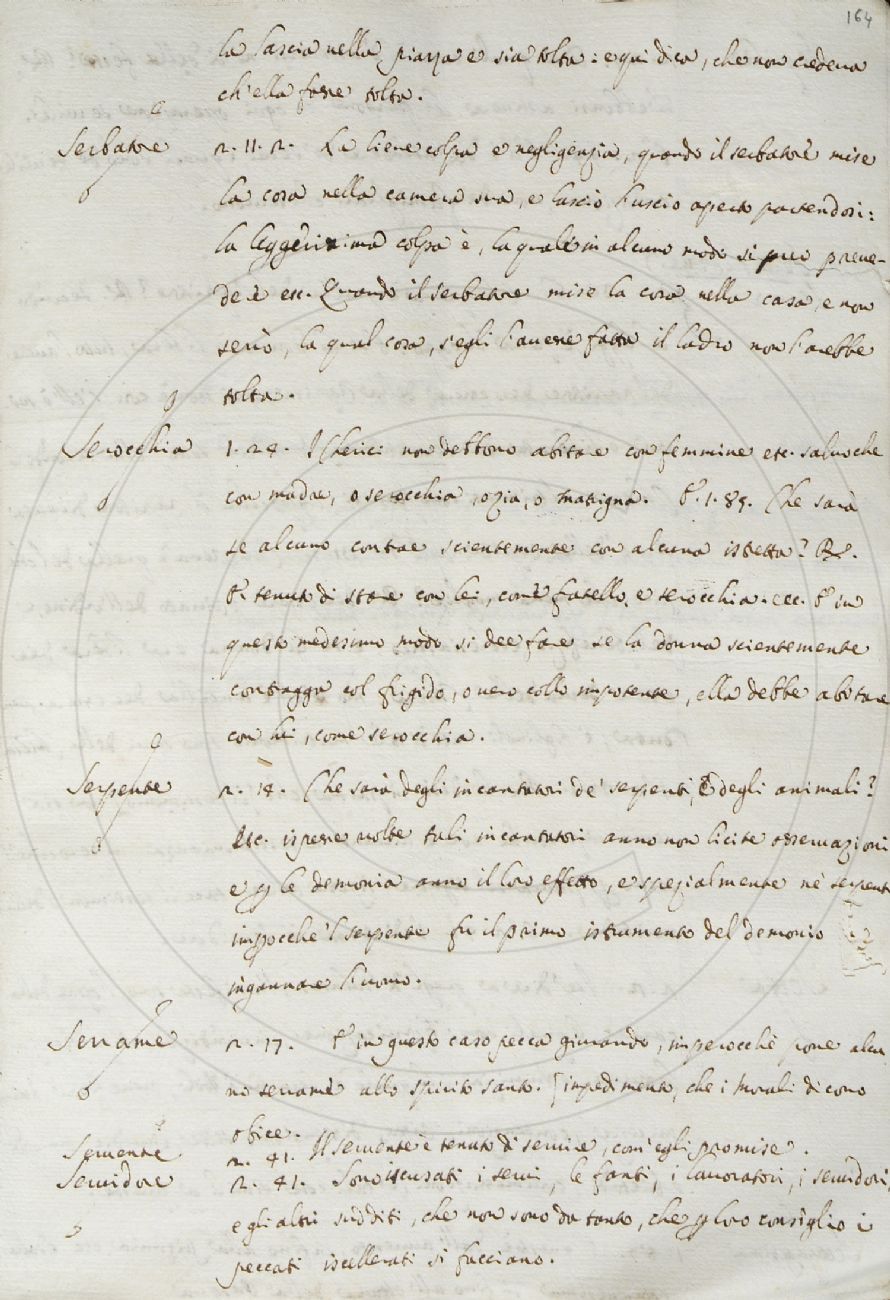 164
la lascia nella piazza e sia tolta: e qui dica, che non credeva
ch'ella fosse tolta.
Serbatore 2. 11. 2. La lieve colpa e negligenzia, quando il serbatore mise
la cosa nella camera sua, e lasciò l'uscio aperto partendosi:
la leggerissima colpa è, la quale in alcuno modo si può preve-
dere etc. Quando il serbatore mise la cosa nella casa, e non
serrò, la qual cosa, s'egli l'avesse fatta il ladro non l'arebbe
tolta.
Serocchia 1. 24. I Cherici non debbono abitare con femmine etc. salvo che
con madre, o serocchia, o zia, o matrigna. E 1. 85. Che sarà
se alcuno contrae scientemente con alcuna istretta? R.
È tenuto di stare con lei, come fratello, e serocchia. ecc. E in
questo medesimo modo si dee fare se la donna scientemente
contragga col frigido, o vero collo impotente, ella debbe abitare
con lui, come serocchia.
Serpente 2. 18. Che sarà degli incantatori de' serpenti, e degli animali?
etc. ispesse volte tali incantatori anno non licite osservazioni
e p le demonia anno il loro effetto, e spezialmente ne' serpenti
impocche 'l serpente fu il primo istrumento del demonio
ingannare l'uomo.
Serrame 2. 17. E in questo caso pecca giurando, imperocchè pone alcu
no serrame allo spirito santo. [impedimento, che i Morali dicono
obice.
Servente 2. 41. Il servente è tenuto di servire, com'egli promise.
Servidore 2. 41. Sono iscusati i servi, le fanti, i lavoratori, i servidori,
e gli altri sudditi, che non sono da tanto, che p loro consiglio i
peccati iscellerati si facciano.